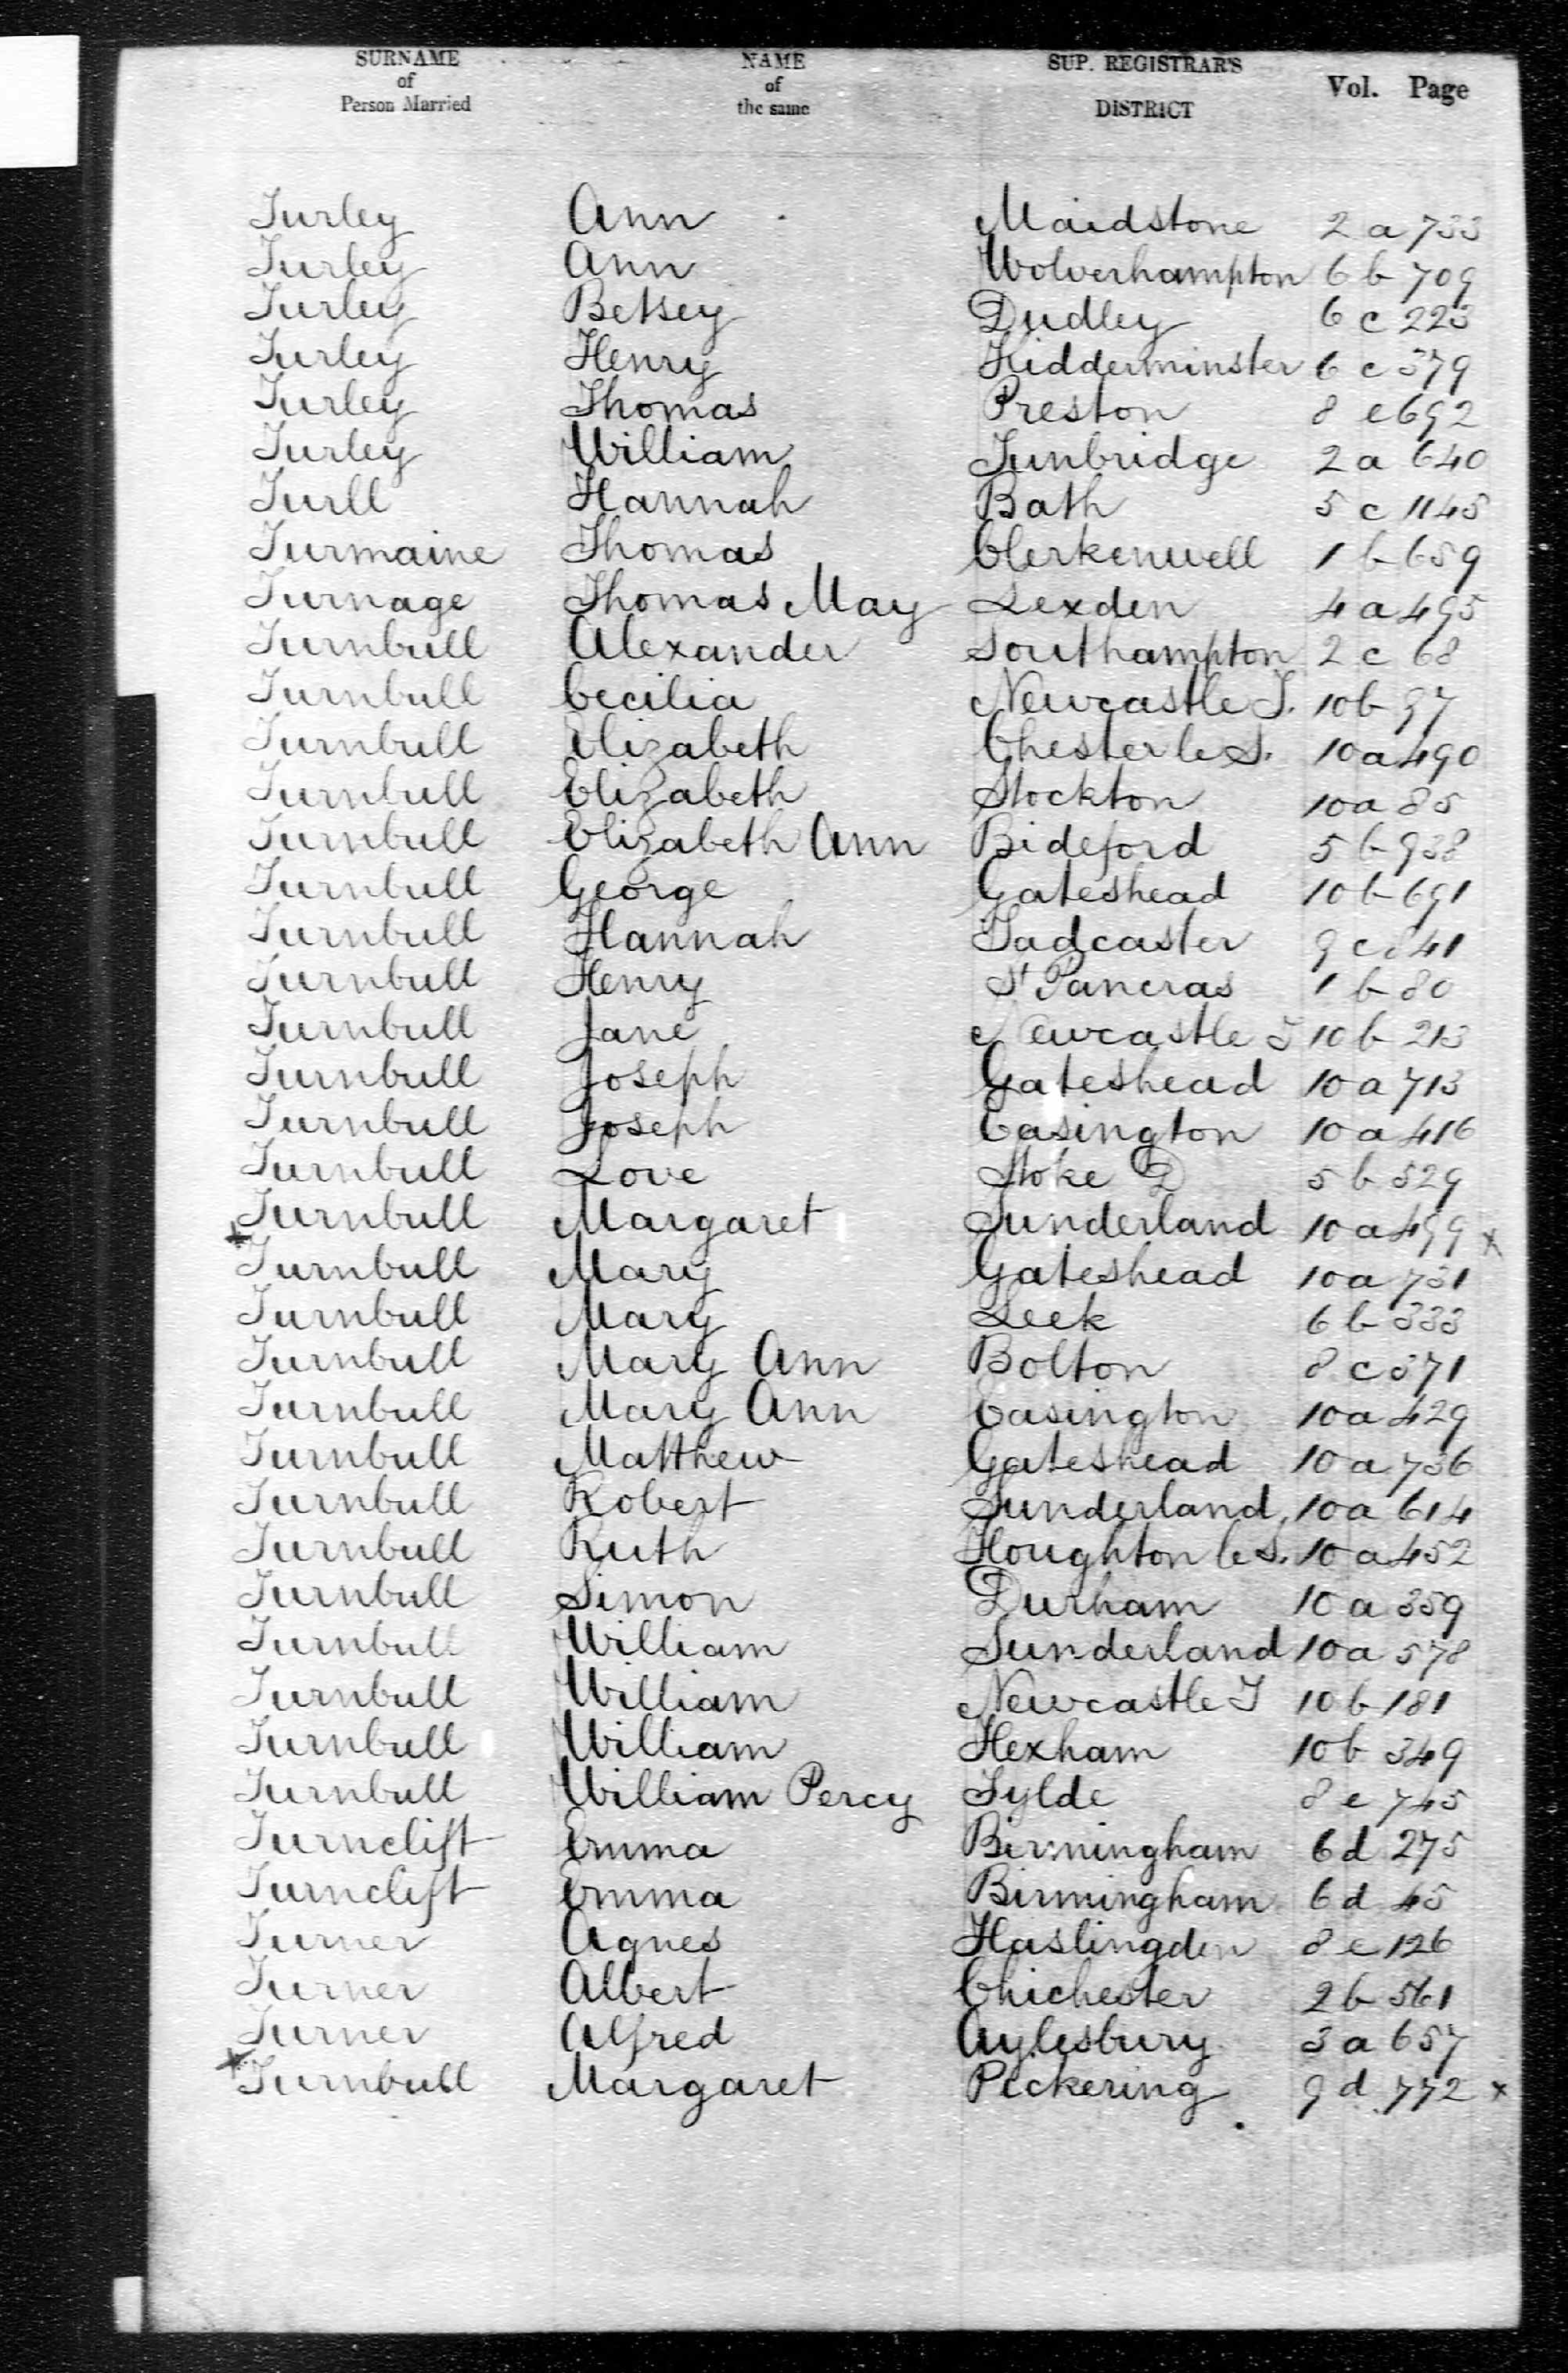 SURNAME of Person Married NAME of the same SUP. REGISTRAR'S DISTRICT Vol. Page
Turley Ann Maidstone 2 a 733
Turley Ann Wolverhampton 6 b 709
Turley Betsey Dudley 6 c 223
Turley Henry Kidderminster 6 c 379
Turley Thomas Preston 8 e 692
Turley William Tunbridge 2 a 640
Turll Hannah Bath 5 c 1145
Turmaine Thomas Clerkenwell 1 b 659
Turnage Thomas May Lexden 4 a 495
Turnbull Alexander Southampton 2 c 68
Turnbull Cecilia Newcastle T. 10 b 97
Turnbull Elizabeth Chester le S. 10 a 490
Turnbull Elizabeth Stockton 10 a 85
Turnbull Elizabeth Ann Bideford 5 b 938
Turnbull George Gateshead 10 b 691
Turnbull Hannah Tadcaster 9 c 841
Turnbull Henry St Pancras 1 b 80
Turnbull Jane Newcastle T 10 b 213
Turnbull Joseph Gateshead 10 a 713
Turnbull Joseph Easington 10 a 416
Turnbull Love Stoke D 5 b 529
Turnbull Margaret Sunderland 10 a 499 x
Turnbull Mary Gateshead 10 a 731
Turnbull Mary Leek 6 b 333
Turnbull Mary Ann Bolton 8 c 371
Turnbull Mary Ann Easington 10 a 429
Turnbull Matthew Gateshead 10 a 736
Turnbull Robert Sunderland 10 a 614
Turnbull Ruth Houghton le S. 10 a 452
Turnbull Simon Durham 10 a 359
Turnbull William Sunderland 10 a 578
Turnbull William Newcastle T 10 b 181
Turnbull William Hexham 10 b 349
Turnbull William Percy Fylde 8 e 745
Turnclift Emma Birmingham 6 d 275
Turnclift Emma Birmingham 6 d 45
Turner Agnes Haslingden 8 e 126
Turner Albert Chichester 2 b 561
Turner Alfred Aylesbury 3 a 657
x Turnbull Margaret Pickering 9 d 772 x